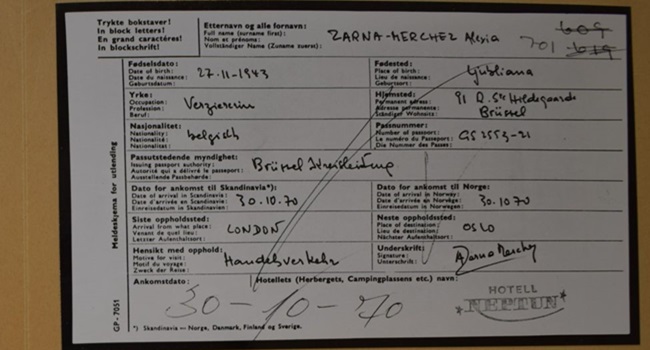 Trykte bokstaver!
In block letters!
En grand caractéres!
In blockschrift!
Etternavn og alle fornavn:
Full name (surname first):
Nom et prénoms:
Vollständiger Name (Zuname zuerst):
ZARNA-MERCHEZ Alexia
701
609
619
Fødselsdato:
Date of birth:
Date du naissance:
Geburtsdatum:
27-11-1943
Fødested:
Place of birth:
Lieu de naissance:
Geburtsort:
Ljubliana
Yrke:
Occupation:
Profession:
Beruf:
Verziererin
Hjemsted:
Permanent adress:
Adresse permanente:
Ständiger Wohnsitz:
91 R. Ste Hildegaarde
Brüssel
Nasjonalitet:
Nationality:
Nationalité:
Nationalität:
belgisch
Passnummer:
Number of passport:
Le numéro du Passeport:
Die Nummer des Passes:
GS 2553-21
Passutstedende myndighet:
Issuing passport authority:
Autorité qui a délivré le passeport:
Ausstellende Passbehørde:
Brüssel
Dato for ankomst til Skandinavia*):
Date of arrival in Scandinavia:
Date d'arrivée en Scandinavie:
Einreisedatum in Skandinavien:
30.10.70
Dato for ankomst til Norge:
Date of arrival in Norway:
Date d'arrivée en Norvège:
Einreisedatum in Norwegen:
30.10.70
Siste oppholdssted:
Arrival from what place:
Venant de quel lieu:
Letzter Aufenthaltsort:
LONDON
Neste oppholdssted:
Place of destination:
Lieu de destination:
Nächster Aufenthaltsort:
OSLO
Hensikt med opphold:
Motive for visit:
Motif du voyage:
Zweck der Reise:
Handelsverkehr
Underskrift:
Signature:
Unterschrift:
AZarna Merchez
Ankomstdato:
Hotellets (Herbergets, Campingplassens etc.) navn:
30-10-70
HOTELL
*NEPTUN*
*) Skandinavia — Norge, Danmark, Finland og Sverige.
Meldeskjema for utlending
GP - 7051